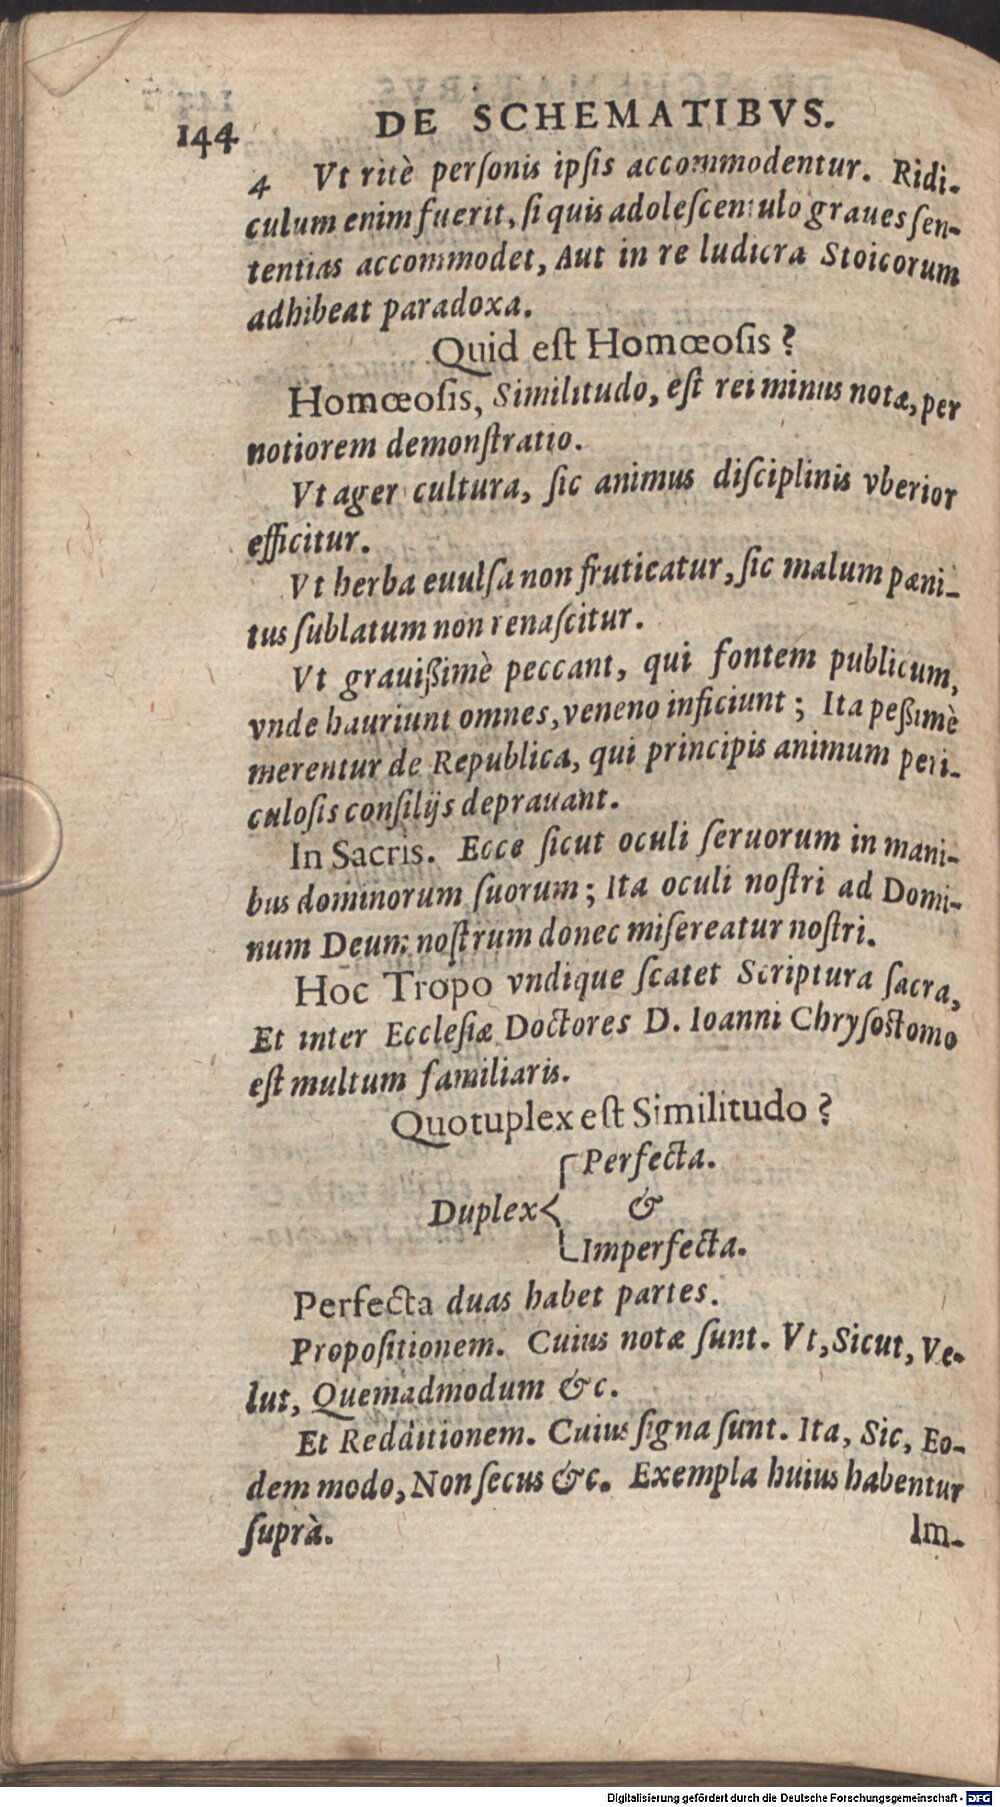 144 DE SCHEMATIBVS.
4 Vt ritè perſonis ipſis accommodentur. Ridi-
culum enim fuerit, ſi quis adoleſcentulo graues ſen-
tentias accommodet, Aut in re ludicra Stoicorum
adhibeat paradoxa.
Quid eſt Homœoſis?
Homœoſis, Similitudo, eſt rei minus notæ, per
notiorem demonſtratio.
Vt ager cultura, ſic animus diſciplinis vberior
efficitur.
Vt herba euulſa non fruticatur, ſic malum pæni-
tus ſublatum non renaſcitur.
Vt grauißimè peccant, qui fontem publicum,
vnde hauriunt omnes, veneno inficiunt; Ita peßimè
merentur de Republica, qui principis animum peri-
culoſis conſilijs deprauant.
In Sacris. Ecce ſicut oculi ſeruorum in mani-
bus dominorum ſuorum; Ita oculi noſtri ad Domi-
num Deum noſtrum donec miſereatur noſtri.
Hoc Tropo vndique ſcatet Scriptura ſacra,
Et inter Eccleſiæ Doctores D. Ioanni Chryſoſtomo
eſt multum familiaris.
Quotuplex eſt Similitudo?
Perfecta.
Duplex &
Imperfecta.
Perfecta duas habet partes.
Propoſitionem. Cuius notæ ſunt. Vt, Sicut, Ve-
lut, Quemadmodum &c.
Et Redditionem. Cuius ſigna ſunt. Ita, Sic, Eo-
dem modo, Non ſecus &c. Exempla huius habentur
ſuprà. Im-
Digitalisierung gefördert durch die Deutsche Forschungsgemeinschaft - DFG